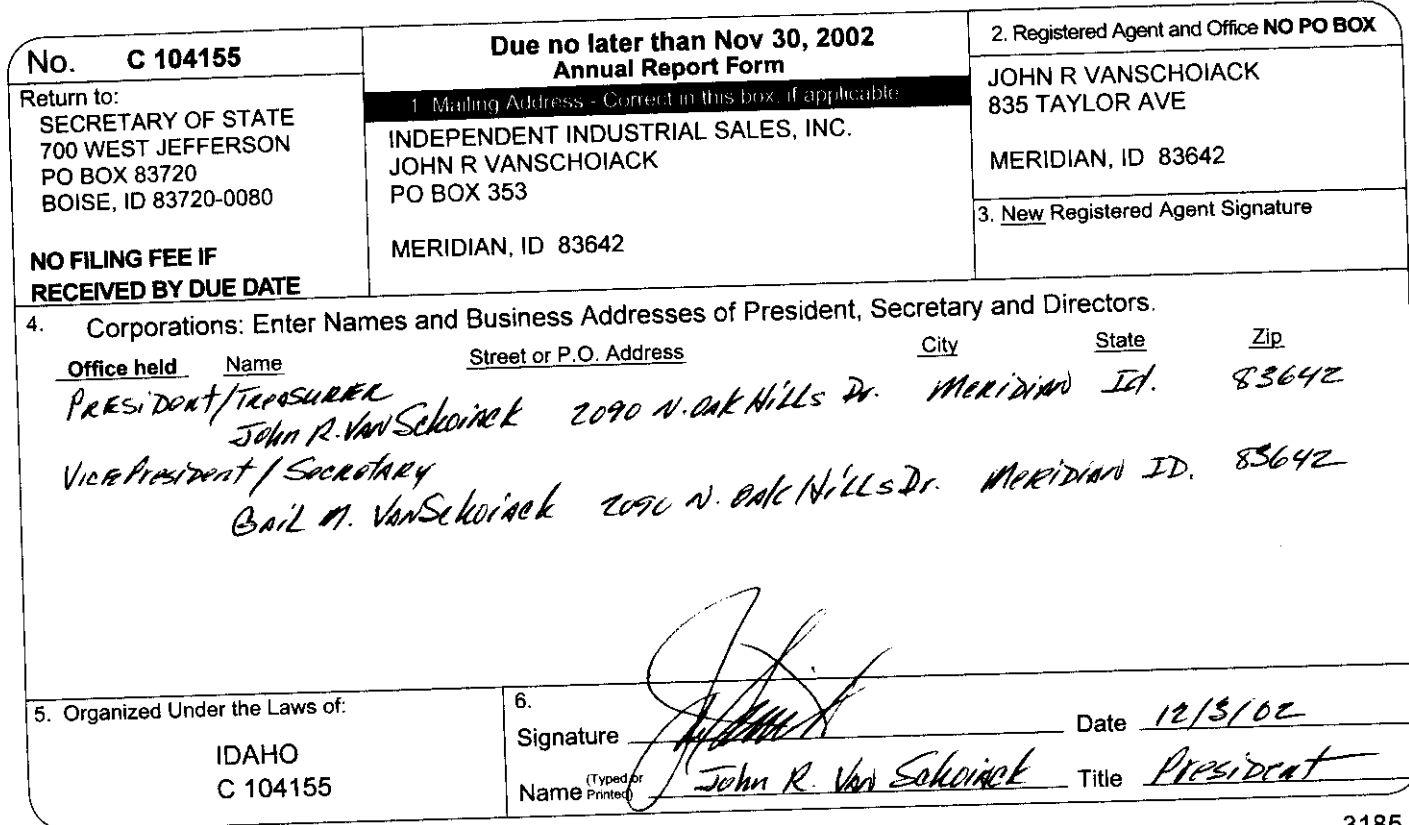 No. C 104155
Return to:
SECRETARY OF STATE
700 WEST JEFFERSON
PO BOX 83720
BOISE, ID 83720-0080
NO FILING FEE IF
RECEIVED BY DUE DATE
Due no later than Nov 30, 2002
Annual Report Form
1. Mailing Address - Correct in this box, if applicable
INDEPENDENT INDUSTRIAL SALES, INC.
JOHN R VANSCHOIACK
PO BOX 353
MERIDIAN, ID 83642
2. Registered Agent and Office NO PO BOX
JOHN R VANSCHOIACK
835 TAYLOR AVE
MERIDIAN, ID 83642
3. New Registered Agent Signature
4. Corporations: Enter Names and Business Addresses of President, Secretary and Directors.
Office held Name Street or P.O. Address City State Zip
President/Treasurer
John R. VanSchoiack 2090 N. Oak Hills Dr. Meridian Id. 83642
Vice President / Secretary
Gail M. VanSchoiack 2090 N. Oak Hills Dr. Meridian ID. 83642
5. Organized Under the Laws of:
IDAHO
C 104155
6.
Signature Date 12/3/02
Name (Typed or Printed) John R. Van Schoiack Title President
3185